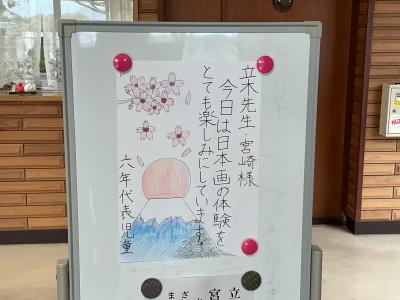 立木先生・宮崎様
今日は日本画の体験を
とても楽しみにしています。
六年代表児童
立
宮
まさ